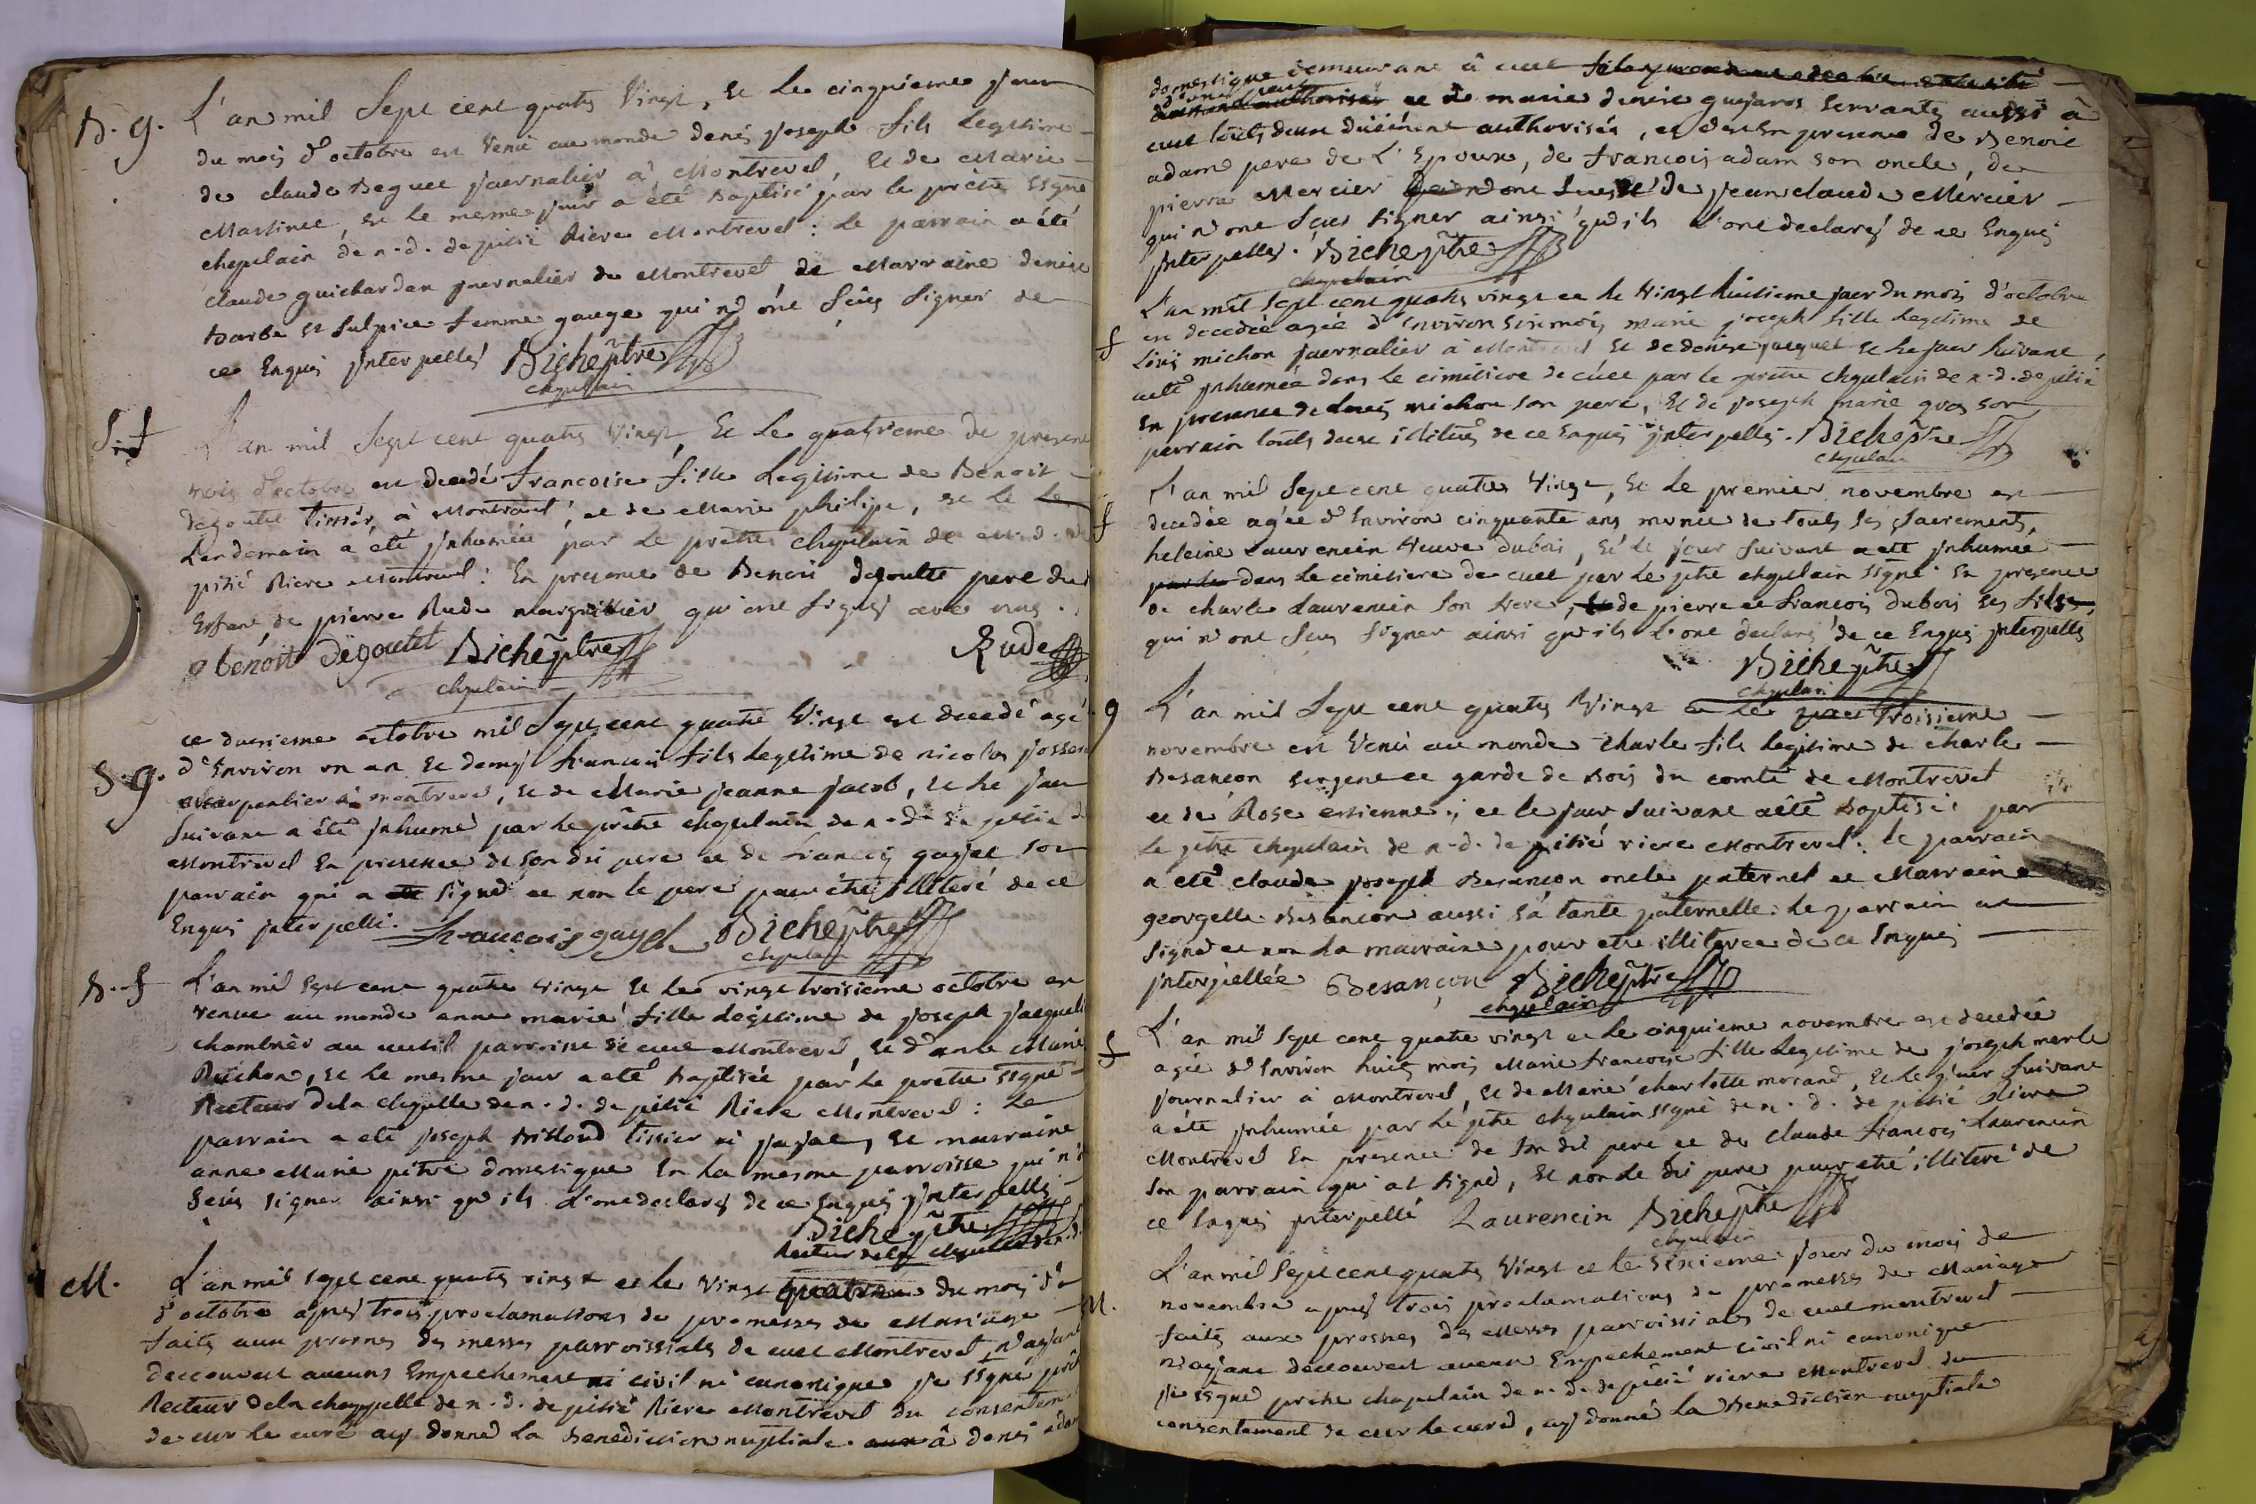 B. g. L'an mil Sept cent quatre Vingt, Et Le cinquieme jour
du mois d'octobre est Venu au monde denis joseph fils Legitime
de claude Beguet journalier à Montrevel, Et de Marie
Martinet, Et le meme jour a été Baptisé par le prêtre Signé
chapelain de n. d. de pitié Riere Montrevel : Le parrain a été
claude guichardan journalier de Montrevel de Marraine denise
barbe St Sulpice femme gauge qui n'ont Sçus Signer de
ce Enquis jnterpellés Biche ptre
chapelain
S. f L'an mil Sept cent quatre Vingt, Et Le quatrieme du present
mois d'octobre est decedé francoise fille Legitime de Benoit
degoutet tissier, à Montrevel, et de Marie philipe, et le Le
Lendemain a été jnhumée par Le prêtre chapelain de n. d. de
pitié Riere Montrevel : En presence de Benoit degoutte pere du d
Enfant, de pierre Rude marguillier qui ont Signés avec nous.
benoit degoutet Biche ptre Rude
chapelain
S. g. ce dousieme octobre mil Sept cent quatre Vingt est decedé agé
d'Environ un an Et demy francois fils Legitime de nicolas josser
charpentier à montrevel, Et de Marie jeanne jacob, Et Le jour
Suivant a été jnhumé par Le prêtre chapelain de n. d. de pitié d
Montrevel En presence de Son dit pere et de francois gayet Son
parrain qui a été Signé et non le pere pour être jlliteré de ce
Enquis jnterpellé. francois gayet Biche ptre
chapelain
B. f L'an mil Sept cent quatre Vingt Et Le vingt troisieme octobre est
venue au monde anne marie fille Legitime de joseph jacquet
chambrier au parroisse de cuet Montrevel, Et d'anne Marie
Buchon, Et Le mesme jour a été Baptisée par Le prêtre Signé
Recteur de la chapelle de n. d. de pitié Riere Montrevel : Le
parrain a été joseph tissier à jayat, Et marraine
anne Marie pitre domestique En La mesme parroisse qui n'o
Seus Signer ainsi qu'ils L'ont declarés de ce Enquis jnterpellés
Biche ptre
Recteur de la chapelle de n. d.
M. L'an mil Sept cent quatre vingt et Le Vingt quatrieme du mois d'o
d'octobre apres trois proclamations de promesses de Mariage
faites aux prosnes des messes parroissiales de cuet Montrevel, n'ayant
decouvert aucuns Empechement ni civil ni canonique je Signé prêt
Recteur de la chappelle de n. d. de pitié Riere Montrevel du consentem
de mr le curé ay donné La Benediction nuptiale aux à denis adam
domestique demeurant à cuet
authorisés et de marie denise guyaros Servante aussi à
cuet touts deux duëment authorisés, et dés En presence de Benoit
adam pere de L'Epoux, de francois adam Son oncle, de
pierre Mercier de jean claude Mercier
qui n'ont Sçus Signer ainsi qu'ils L'ont declarés de ce Enquis
jnterpellés. Biche ptre
chapelain
f L'an mil Sept cent quatre vingt et Le Vingt huitieme jour du mois d'octobre
est decedée agée d'Environ Six mois marie joseph fille Legitime de
Loüis michon journalier à Montrevel Et de denise jacquet Et Le jour Suivant
a été jnhumée dans Le cimitiere de cuet par Le prêtre chapelain de n. d. de pitié
En presence de Loüis michon Son pere, Et de joseph marie gros Son
parrain touts deux illiterés de ce Enquis jnterpellés. Biche ptre
chapelain
f L'an mil Sept cent quatre Vingt, Et Le premier novembre est
decedée agée d'Environ cinquante ans munie de touts Ses Sacrements,
heleine Laurencin Veuve dubois, Et Le jour Suivant a été jnhumée
par Le dans Le cimitiere de cuet par Le ptre chapelain Signé En presence
de charle Laurencin Son frere, Et de pierre et francois dubois Ses fils
qui n'ont Sçus Signer ainsi qu'ils L'ont declarés de ce Enquis jnterpellés
Biche ptre
chapelain
g L'an mil Sept cent quatre Vingt et Le troisieme
novembre est Venu au monde Charle fils legitime de charle
Besançon Sergent et garde de Bois du comté de Montrevel
et de Rose etienne ; et le jour Suivant a été Baptisé par
Le ptre chapelain de n. d. de pitié riere Montrevel : Le parrain
a été claude joseph Besançon oncle paternel et Marraine
georgette Besancon aussi Sa tante paternelle : Le parrain a
Signé et non La marraine pour etre illiteree de ce Enquis
jnterpellée Besançon Biche ptre
chapelain
f L'an mil Sept cent quatre vingt et Le cinquieme novembre est decedée
agée d'Environ huit mois Marie francoise fille Legitime de joseph merle
journalier à Montrevel, Et de Marie charlotte morand, Et Le jour Suivant
a été jnhumée par Le ptre chapelain Signé de n. d. de pitié Riere
Montrevel En presence de Son dit pere et de Claude francois Laurencin
Son parrain qui at Signé, Et non Le dit pere pour etre illiteré de
ce Enquis jnterpellé Laurencin Biche ptre
chapelain
M. L'an mil Sept cent quatre Vingt et le Sixieme jour du mois de
novembre apres trois proclamations de promesses de Mariage
faites aux prosnes des Messes parroissiales de cuet montrevel
n'ayant decouvert aucun Empechement civil ni canonique
je Signé prêtre chapelain de n. d. de pitié riere Montrevel du
consentement de mr le curé, ay donné La Benediction nuptiale